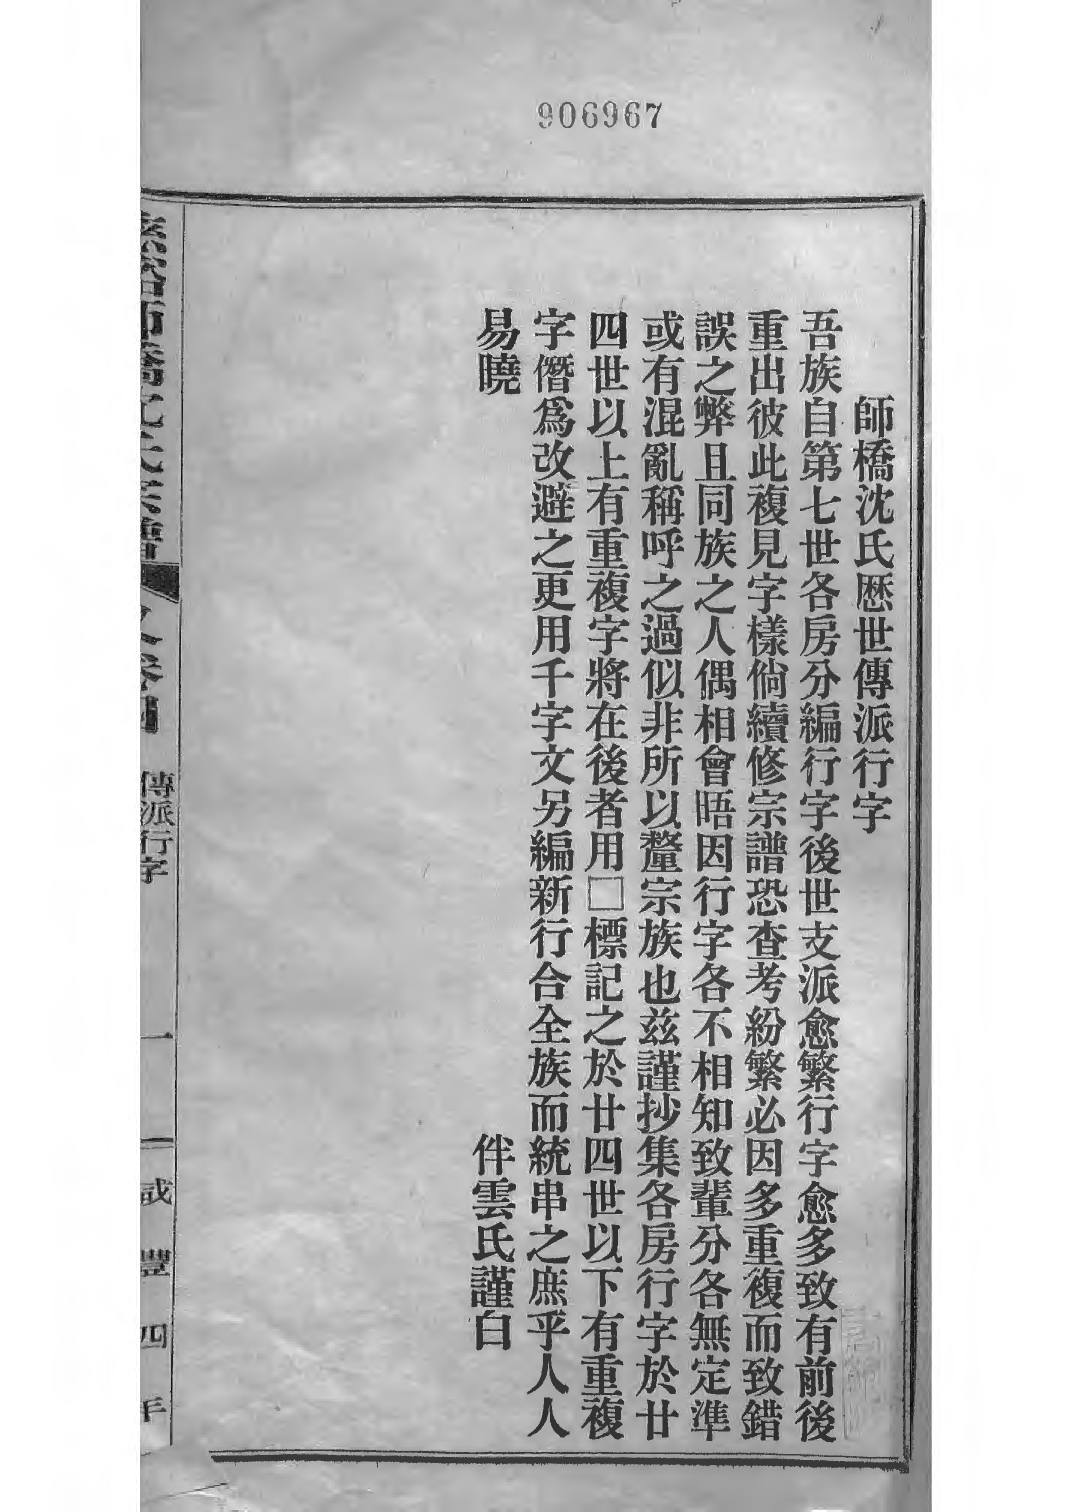 906967
師橋沈氏歷世傳派行字
吾族自第七世各房分編行字後世支派愈繁行字愈多致有前後
重出彼此複見字樣倘續修宗譜恐查考紛繁必因多重複而致錯
誤之弊且同族之人偶相會晤因行字各不相知致輩分各無定準
或有混亂稱呼之過似非所以釐宗族也茲謹抄集各房行字於廿
四世以上有重複字將在後者用□標記之於廿四世以下有重複
字僭爲改避之更用千字文另編新行合全族而統串之庶乎人人
易曉
伴雲氏謹白
慈谿師橋沈氏宗譜
卷四
傳派行字
一
咸豐四年